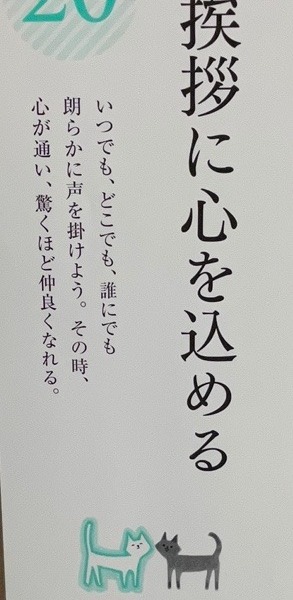 20
挨拶に心を込める
いつでも、どこでも、誰にでも
朗らかに声を掛けよう。その時、
心が通い、驚くほど仲良くなれる。